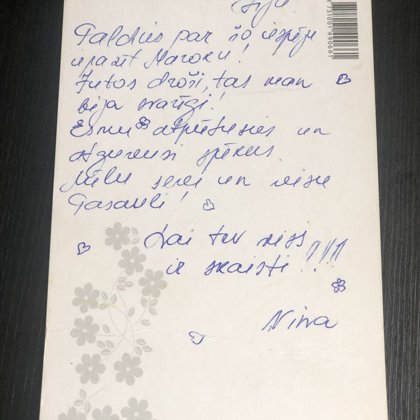 Paldies par šo iespēju
iepazīt Maroku!
Jutos droši, tas man
bija svarīgi!
Esmu atpūtusies un
atguvusi spēkus.
Mīlu sevi un visu
Pasauli!
Lai tev viss
ir skaisti!!!!
Nina